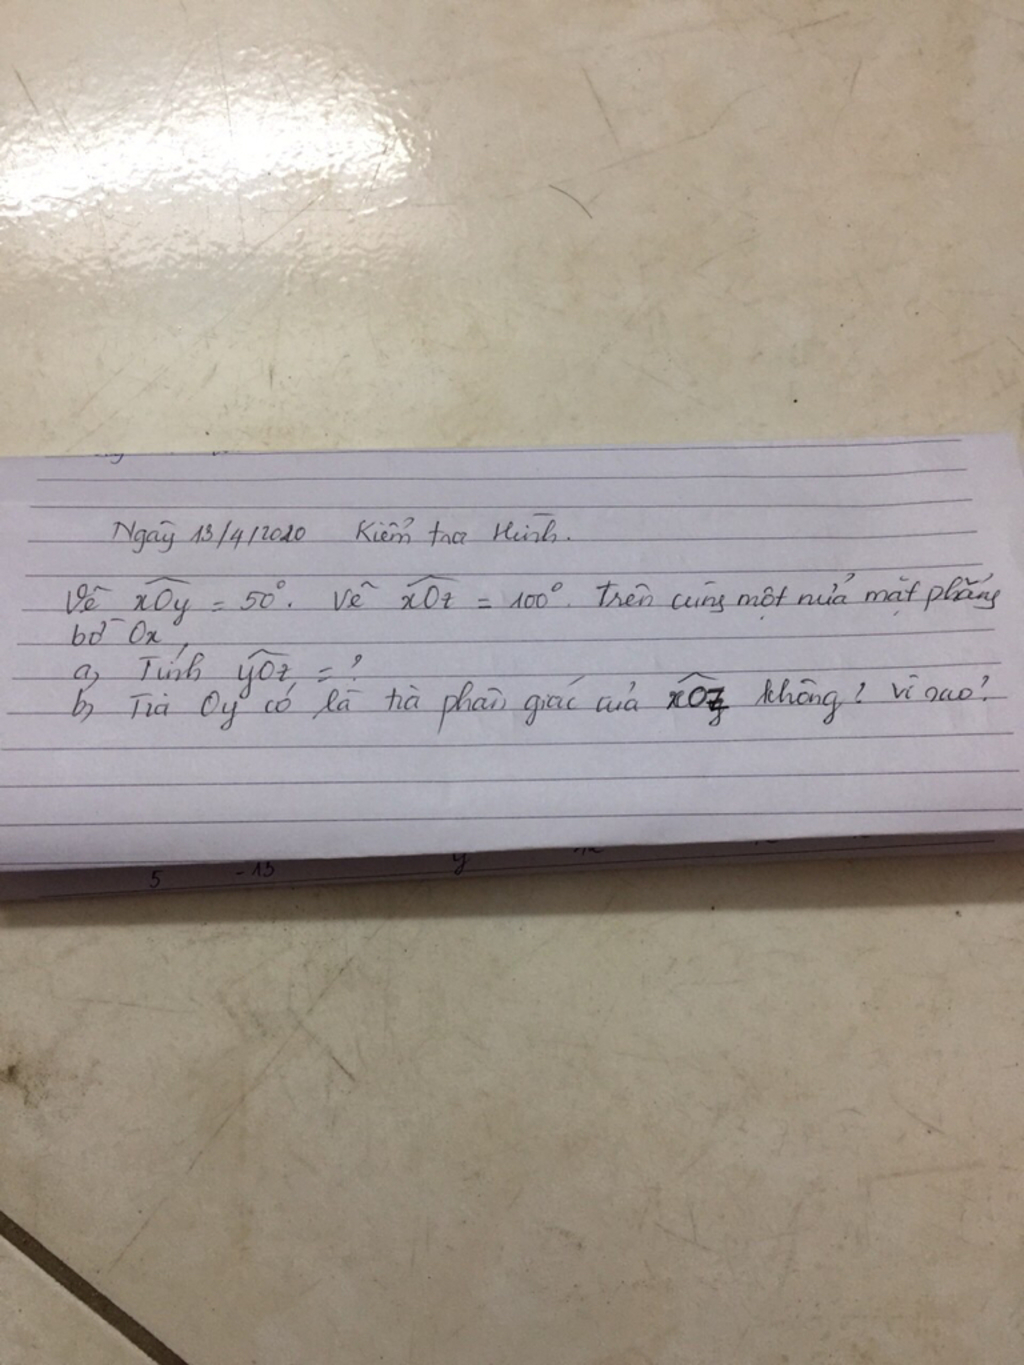 Ngày 13/4/2020 Kiểm tra Hình.
Vẽ xOy = 50°. Vẽ xOz = 100°. Trên cùng một nửa mặt phẳng
bờ Ox,
a, Tính yOz = ?
b, Tia Oy có là tia phân giác của xOz không? Vì sao?
5 -13 y